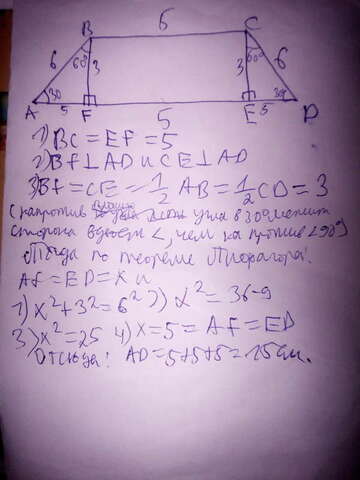 5
B C
6 60 3 3 60 6
30 30
A 5 F 5 E 5 D
1) BC = EF = 5
2) BF ⊥ AD и CE ⊥ AD
3) BF = CE = 1/2 AB = 1/2 CD = 3
(напротив угла в 30° лежит
сторона в два <, чем на против <90°)
Тогда по теореме Пифагора:
AF = ED = X и
1) x² + 3² = 6² 2) x² = 36-9
3) x² = 25 4) x = 5 = AF = ED
Отсюда: AD = 5+5+5 = 15 см.